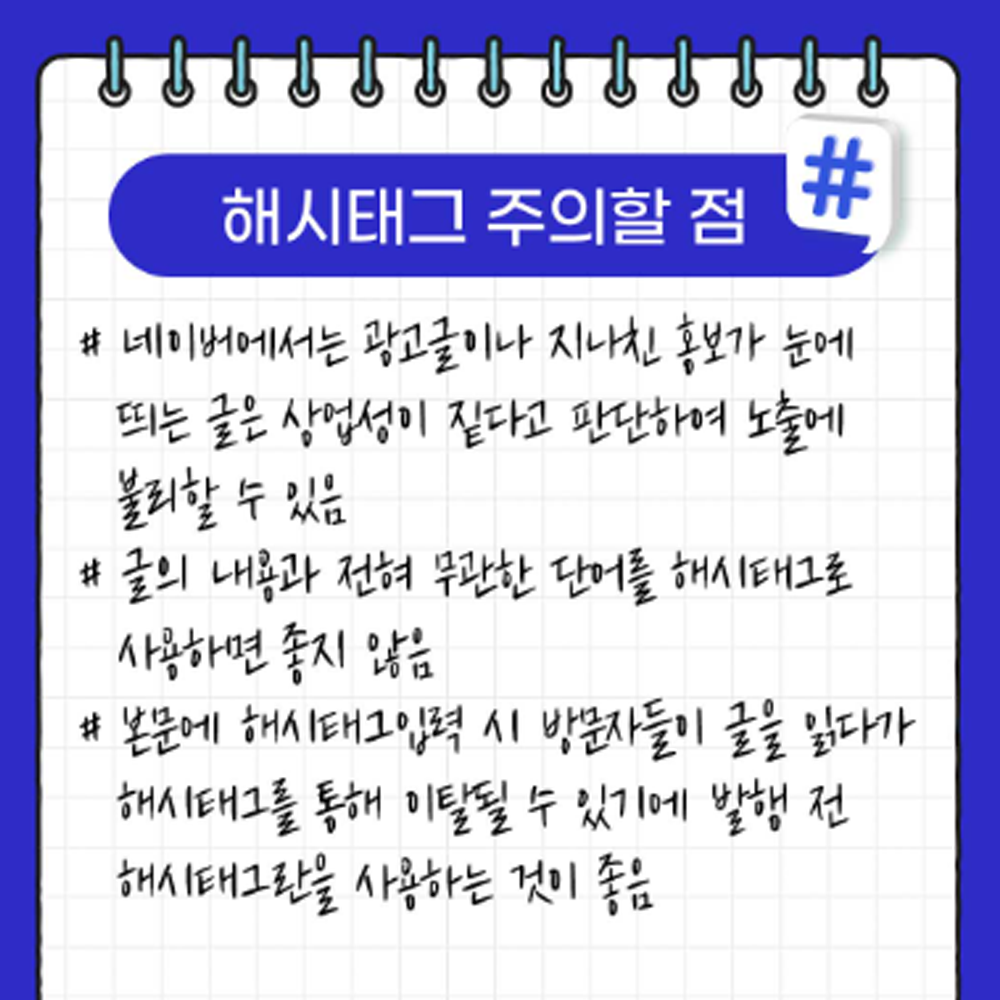 해시태그 주의할 점
#
# 네이버에서는 광고글이나 지나친 홍보가 눈에
띄는 글은 상업성이 짙다고 판단하여 노출에
불리할 수 있음
# 글의 내용과 전혀 무관한 단어를 해시태그로
사용하면 좋지 않음
# 본문에 해시태그입력 시 방문자들이 글을 읽다가
해시태그를 통해 이탈될 수 있기에 발행 전
해시태그란을 사용하는 것이 좋음